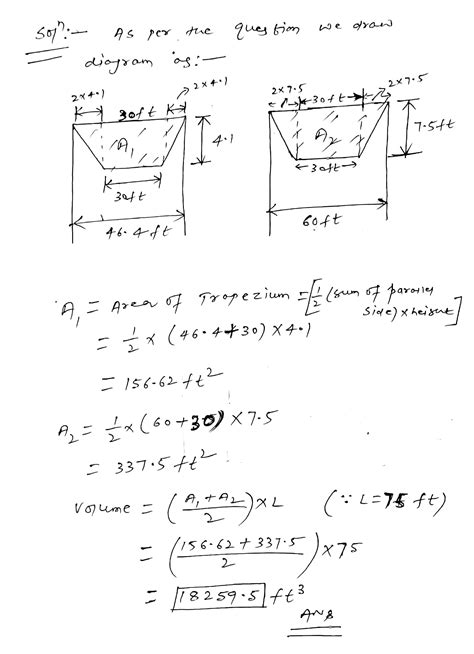 Solⁿ:- As per the question we draw
diagram as:-
2x4.1 30ft 2x4.1
A₁ 4.1
30ft
46.4ft
2x7.5 30ft 2x7.5
A₂ 7.5ft
30ft
60ft
A₁ = Area of Tropezium = [1/2 (sum of parallel
side) x height]
= 1/2 x (46.4+30) x 4.1
= 156.62 ft²
A₂ = 1/2 x (60+30) x 7.5
= 337.5 ft²
Volume = (A₁+A₂/2) x L (∵ L=75 ft)
= (156.62 + 337.5/2) x 75
= 18259.5 ft³
Ans